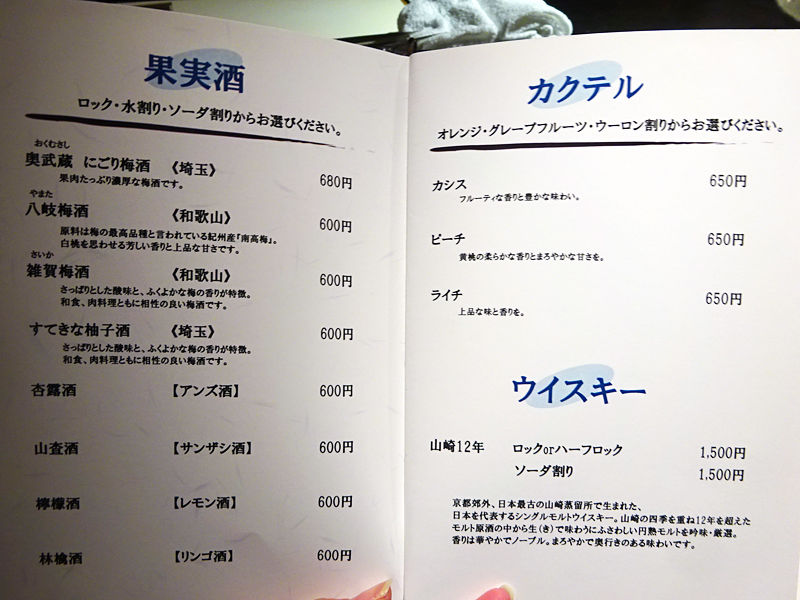 果実酒
ロック・水割り・ソーダ割りからお選びください。
おくむさし
奥武蔵 にごり梅酒 《埼玉》 680円
果肉たっぷり濃厚な梅酒です。
やまた
八岐梅酒 《和歌山》 600円
原料は梅の最高品種と言われている紀州産『南高梅』。
白桃を思わせる芳しい香りと上品な甘さです。
さいか
雑賀梅酒 《和歌山》 600円
さっぱりとした酸味と、ふくよかな梅の香りが特徴。
和食、肉料理ともに相性の良い梅酒です。
すてきな柚子酒 《埼玉》 600円
さっぱりとした酸味と、ふくよかな梅の香りが特徴。
和食、肉料理ともに相性の良い梅酒です。
杏露酒 【アンズ酒】 600円
山査酒 【サンザシ酒】 600円
檸檬酒 【レモン酒】 600円
林檎酒 【リンゴ酒】 600円
カクテル
オレンジ・グレープフルーツ・ウーロン割りからお選びください。
カシス 650円
フルーティな香りと豊かな味わい。
ピーチ 650円
黄桃の柔らかな香りとまろやかな甘さを。
ライチ 650円
上品な味と香りを。
ウイスキー
山崎12年 ロックorハーフロック 1,500円
ソーダ割り 1,500円
京都郊外、日本最古の山崎蒸留所で生まれた、
日本を代表するシングルモルトウイスキー。山崎の四季を重ね12年を超えた
モルト原酒の中から生(き)で味わうにふさわしい円熟モルトを吟味・厳選。
香りは華やかでノーブル。まろやかで奥行きのある味わいです。